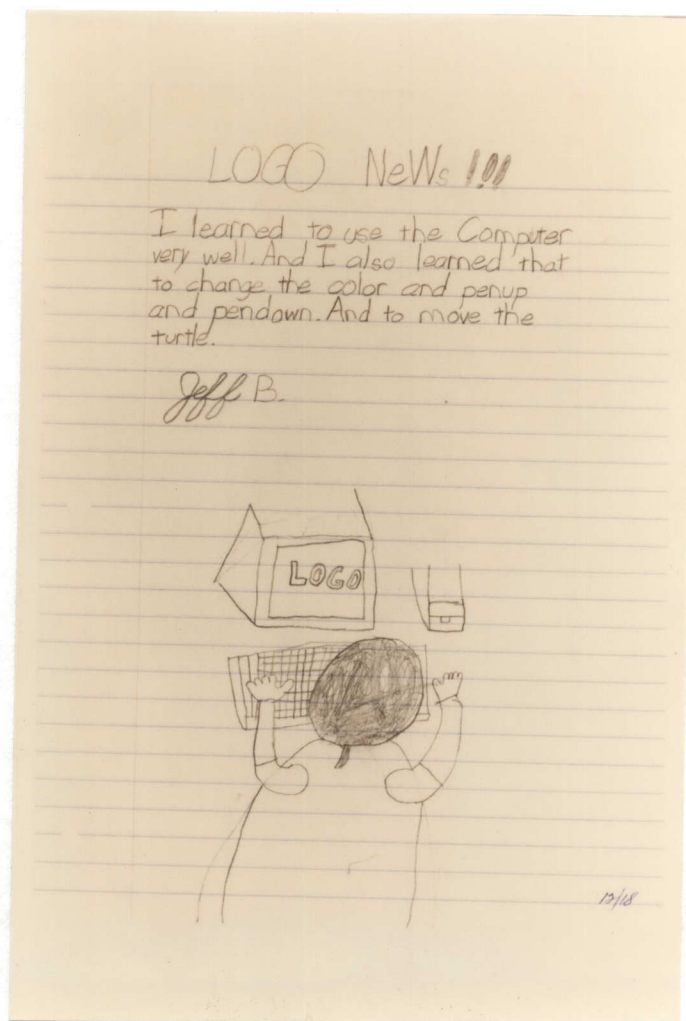 LOGO NeWs !!!
I learned to use the Computer
very well. And I also learned that
to change the color and penup
and pendown. And to move the
turtle.
Jeff B.
LOGO
12/18